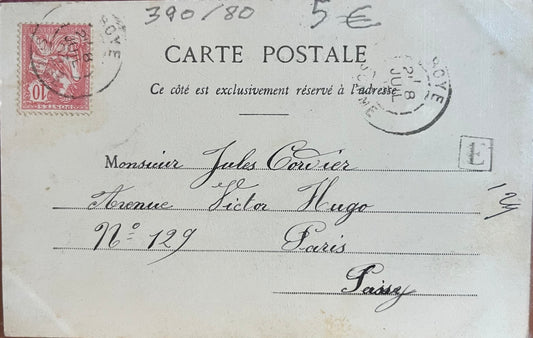 390/80 5 €
CARTE POSTALE
Ce côté est exclusivement réservé à l'adresse
ROYE
21 8
JUIL
SOMME
10
POSTES
E
Monsieur Jules Cordier
Avenue Victor Hugo
Nº 129 Paris
Passy
129